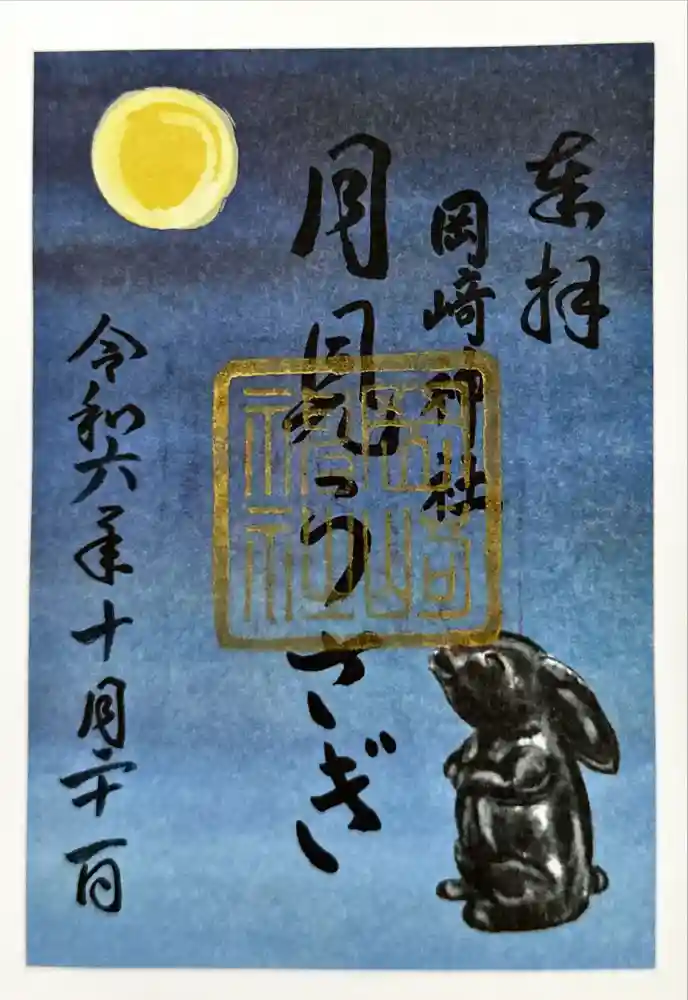 奉拝
岡崎神社
月見うさぎ
令和六年十月二十一日
岡崎神社